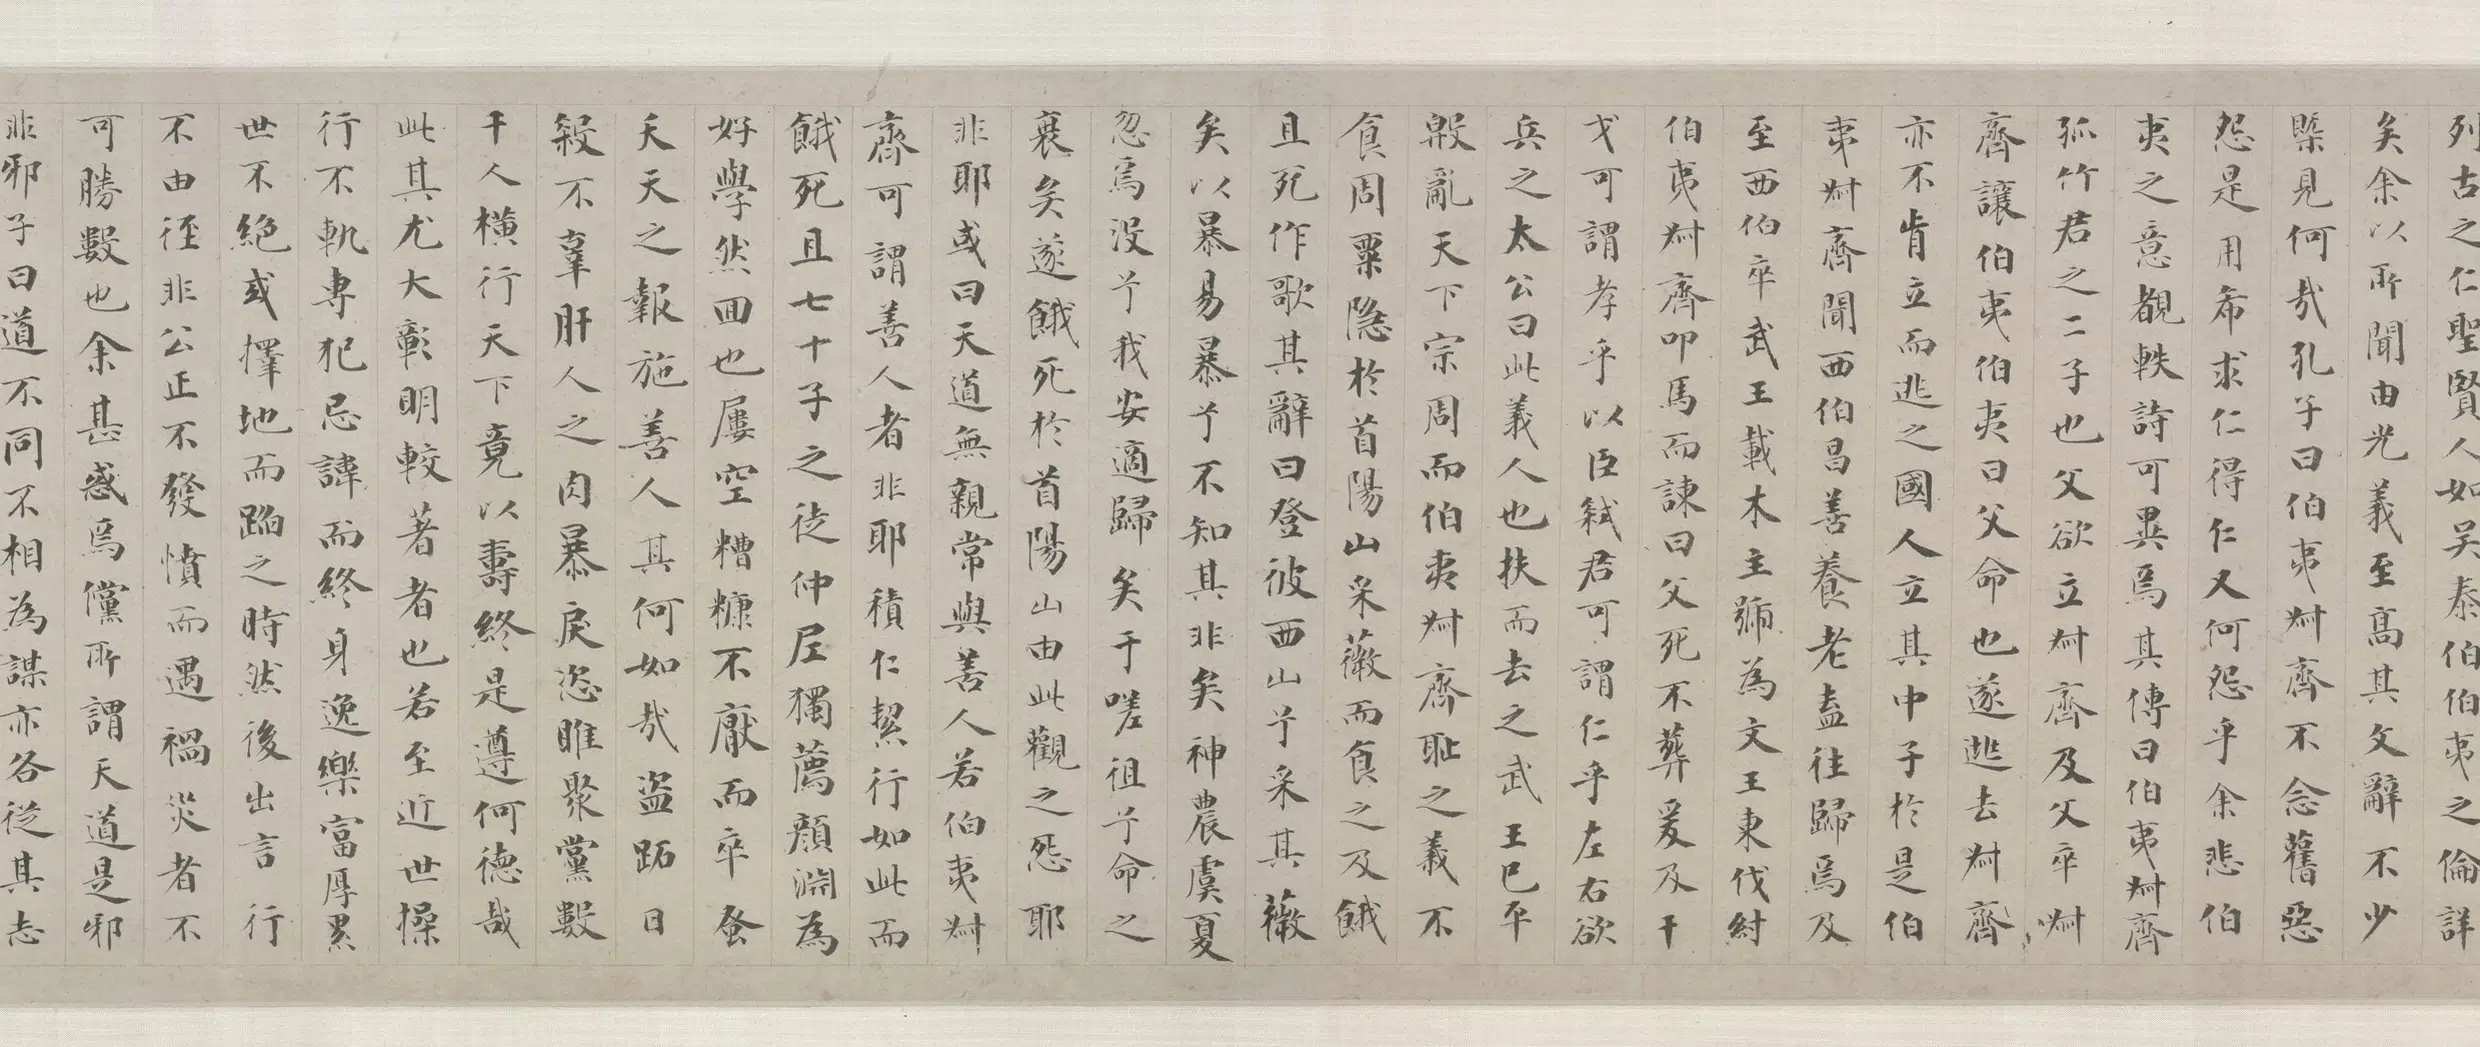 列古之仁聖賢人如吴泰伯伯夷之倫詳
矣余以所聞由光義至高其文辭不少
槩見何㢤孔子曰伯夷叔齊不念舊惡
怨是用希求仁得仁又何怨乎余悲伯
夷之意覩軼詩可異焉其傳曰伯夷叔齊
孤竹君之二子也父欲立叔齊及父卒叔
齊讓伯夷伯夷曰父命也遂逃去叔齊
亦不肯立而逃之國人立其中子於是伯
夷叔齊聞西伯昌善養老盍往歸焉及
至西伯卒武王載木主號為文王東伐紂
伯夷叔齊叩馬而諫曰父死不葬爰及干
戈可謂孝乎以臣弒君可謂仁乎左右欲
兵之太公曰此義人也扶而去之武王已平
殷亂天下宗周而伯夷叔齊恥之義不
食周粟隐於首陽山采薇而食之及餓
且死作歌其辭曰登彼西山兮采其薇
矣以暴易暴兮不知其非矣神農虞夏
忽焉没兮我安適歸矣于嗟徂兮命之
衰矣遂餓死於首陽山由此觀之怨耶
非耶或曰天道無親常與善人若伯夷叔
齊可謂善人者非耶積仁絜行如此而
餓死且七十子之徒仲尼獨薦顔淵為
好學然回也屢空糟糠不厭而卒蚤
夭天之報施善人其何如㢤盜跖日
殺不辜肝人之肉暴戾恣睢聚黨數
千人橫行天下竟以壽終是遵何德哉
此其尤大彰明較著者也若至近世操
行不軌專犯忌諱而終身逸樂富厚累
世不絕或擇地而蹈之時然後出言行
不由徑非公正不發憤而遇禍災者不
可勝數也余甚惑焉儻所謂天道是邪
非邪子曰道不同不相為謀亦各從其志